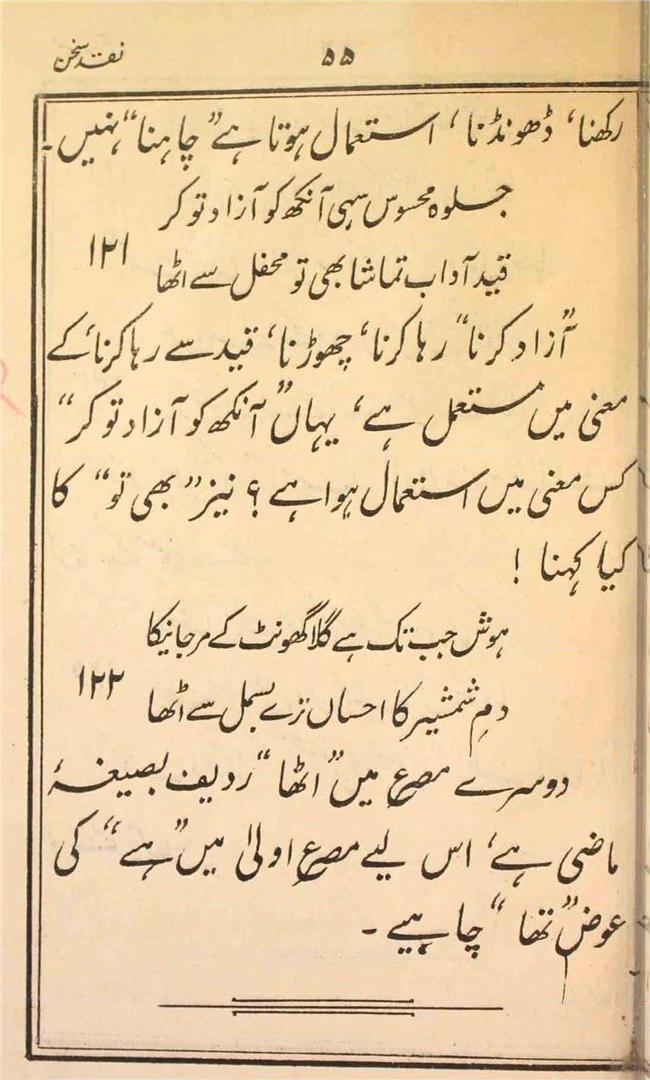 نقد سخن
۵۵
رکھنا، ڈھونڈنا، استعمال ہوتا ہے ”چاہنا“ نہیں۔
جلوہ محسوس سہی آنکھ کو آزاد تو کر
۱۲۱
قید آداب تماشا بھی تو محفل سے اٹھا
”آزاد کرنا“ رہا کرنا، چھوڑنا، قید سے رہا کرنا، کے
معنی میں مستعمل ہے، یہاں ”آنکھ کو آزاد تو کر“
کس معنی میں استعمال ہوا ہے؟ نیز ”بھی تو“ کا
کیا کہنا!
ہوش جب تک ہے گلا گھونٹ کے مرجانیکا
۱۲۲
دمِ شمشیر کا احساں ترے بسمل سے اٹھا
دوسرے مصرع میں ”اٹھا“ ردیف بصیغۂ
ماضی ہے، اس لیے مصرع اولیٰ میں ”ہے“ کی
عوض ”تھا“ چاہیے۔